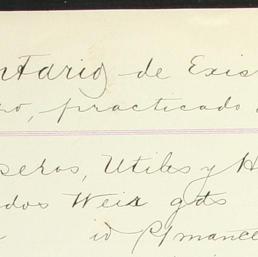 ntario de Exis
ro, practicado
seros, Utiles y H
dos Weir gds
id P/mance